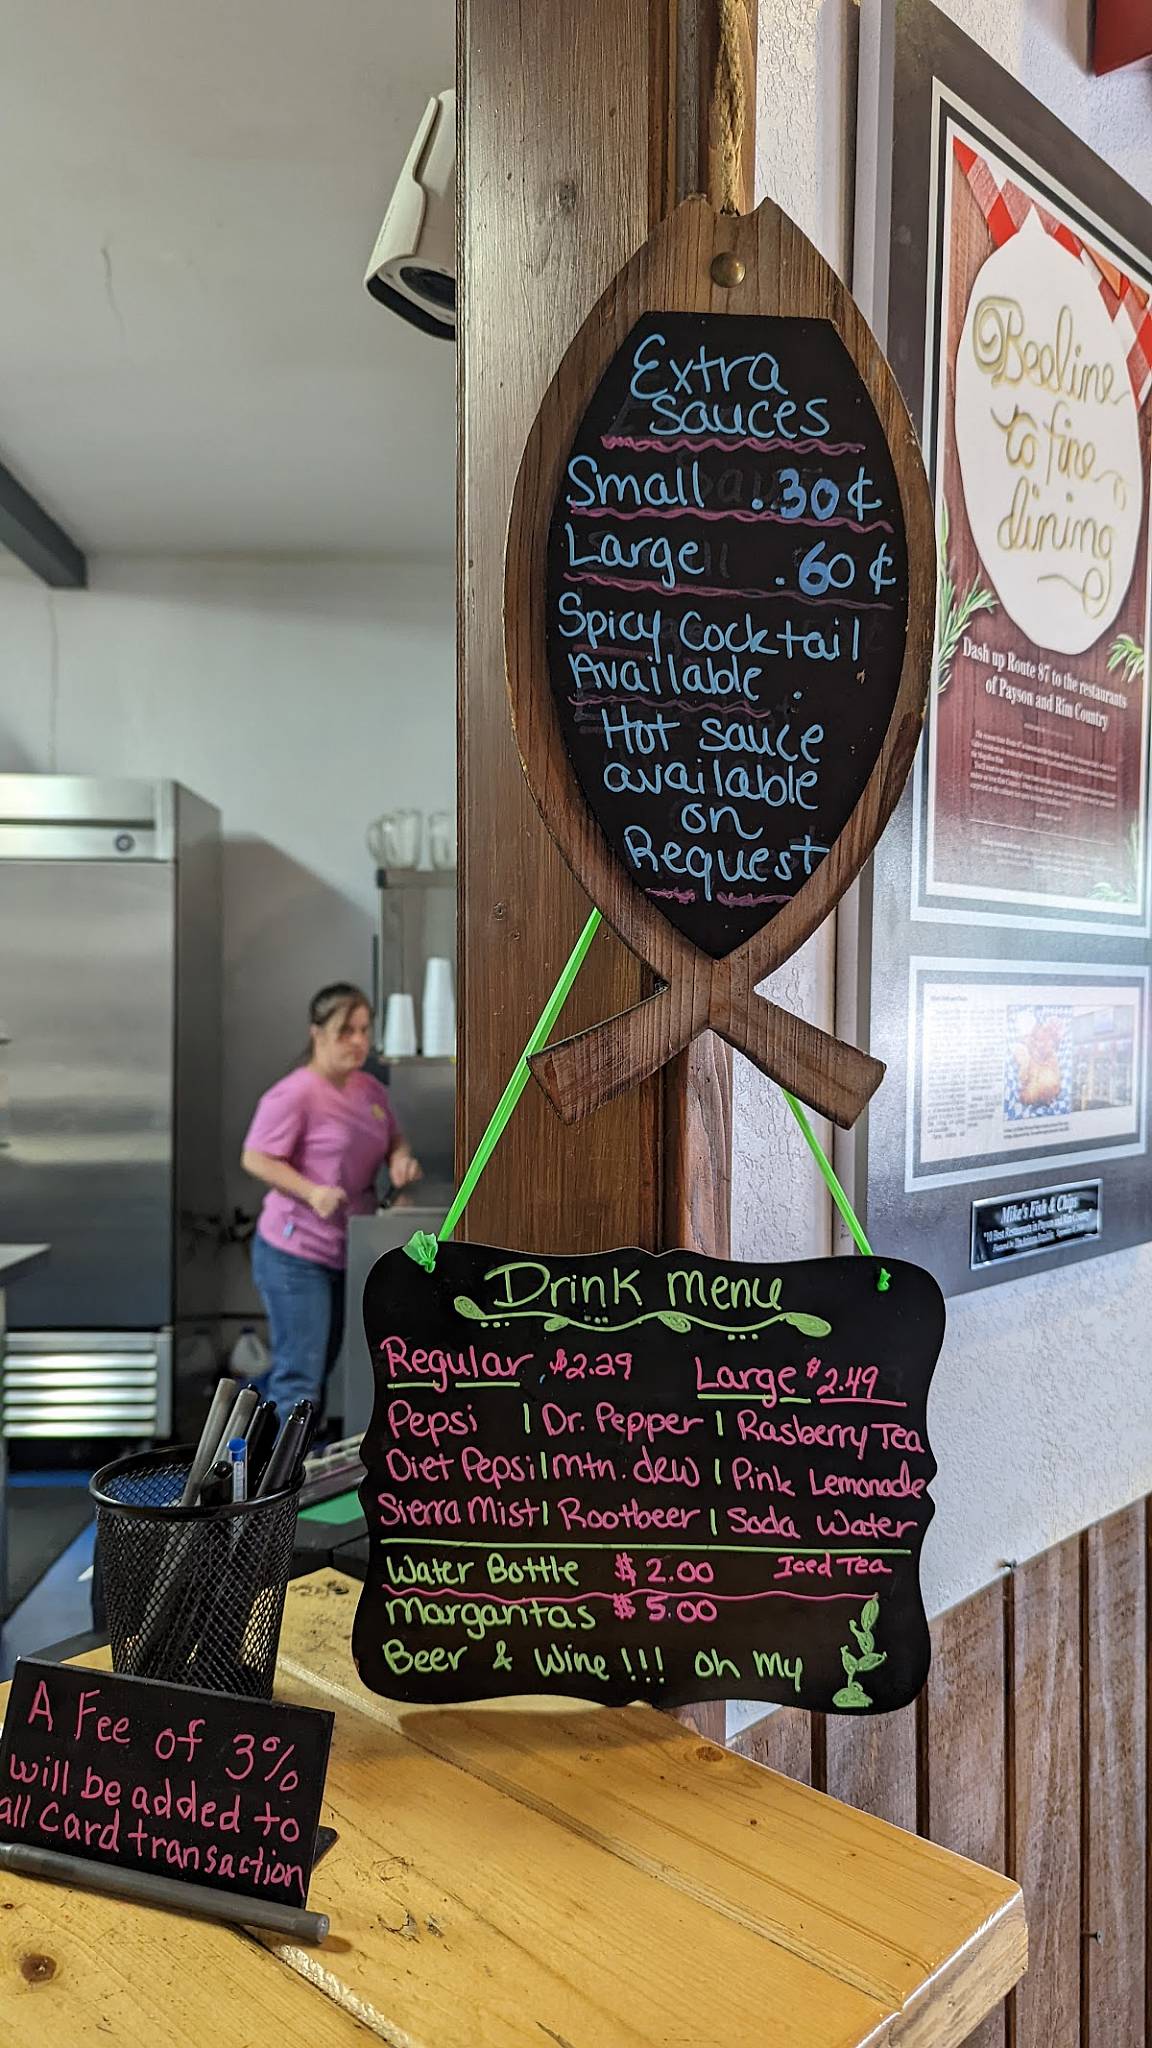 Extra
Sauces
Small .30¢
Large .60¢
Spicy Cocktail
Available.
Hot sauce
available
on
Request
Drink menu
Regular $2.29 Large $2.49
Pepsi | Dr. Pepper | Rasberry Tea
Diet Pepsi | mtn. dew | Pink Lemonade
Sierra Mist | Rootbeer | Soda Water
Water Bottle $2.00 Iced Tea
margaritas $5.00
Beer & Wine!!! Oh My
A Fee of 3%
will be added to
all Card transaction
Beeline
to fine
dining
Dash up Route 87 to the restaurants
of Payson and Rim Country
Mike's Fish & Chips
"10 Best Restaurants in Payson and Rim Country"